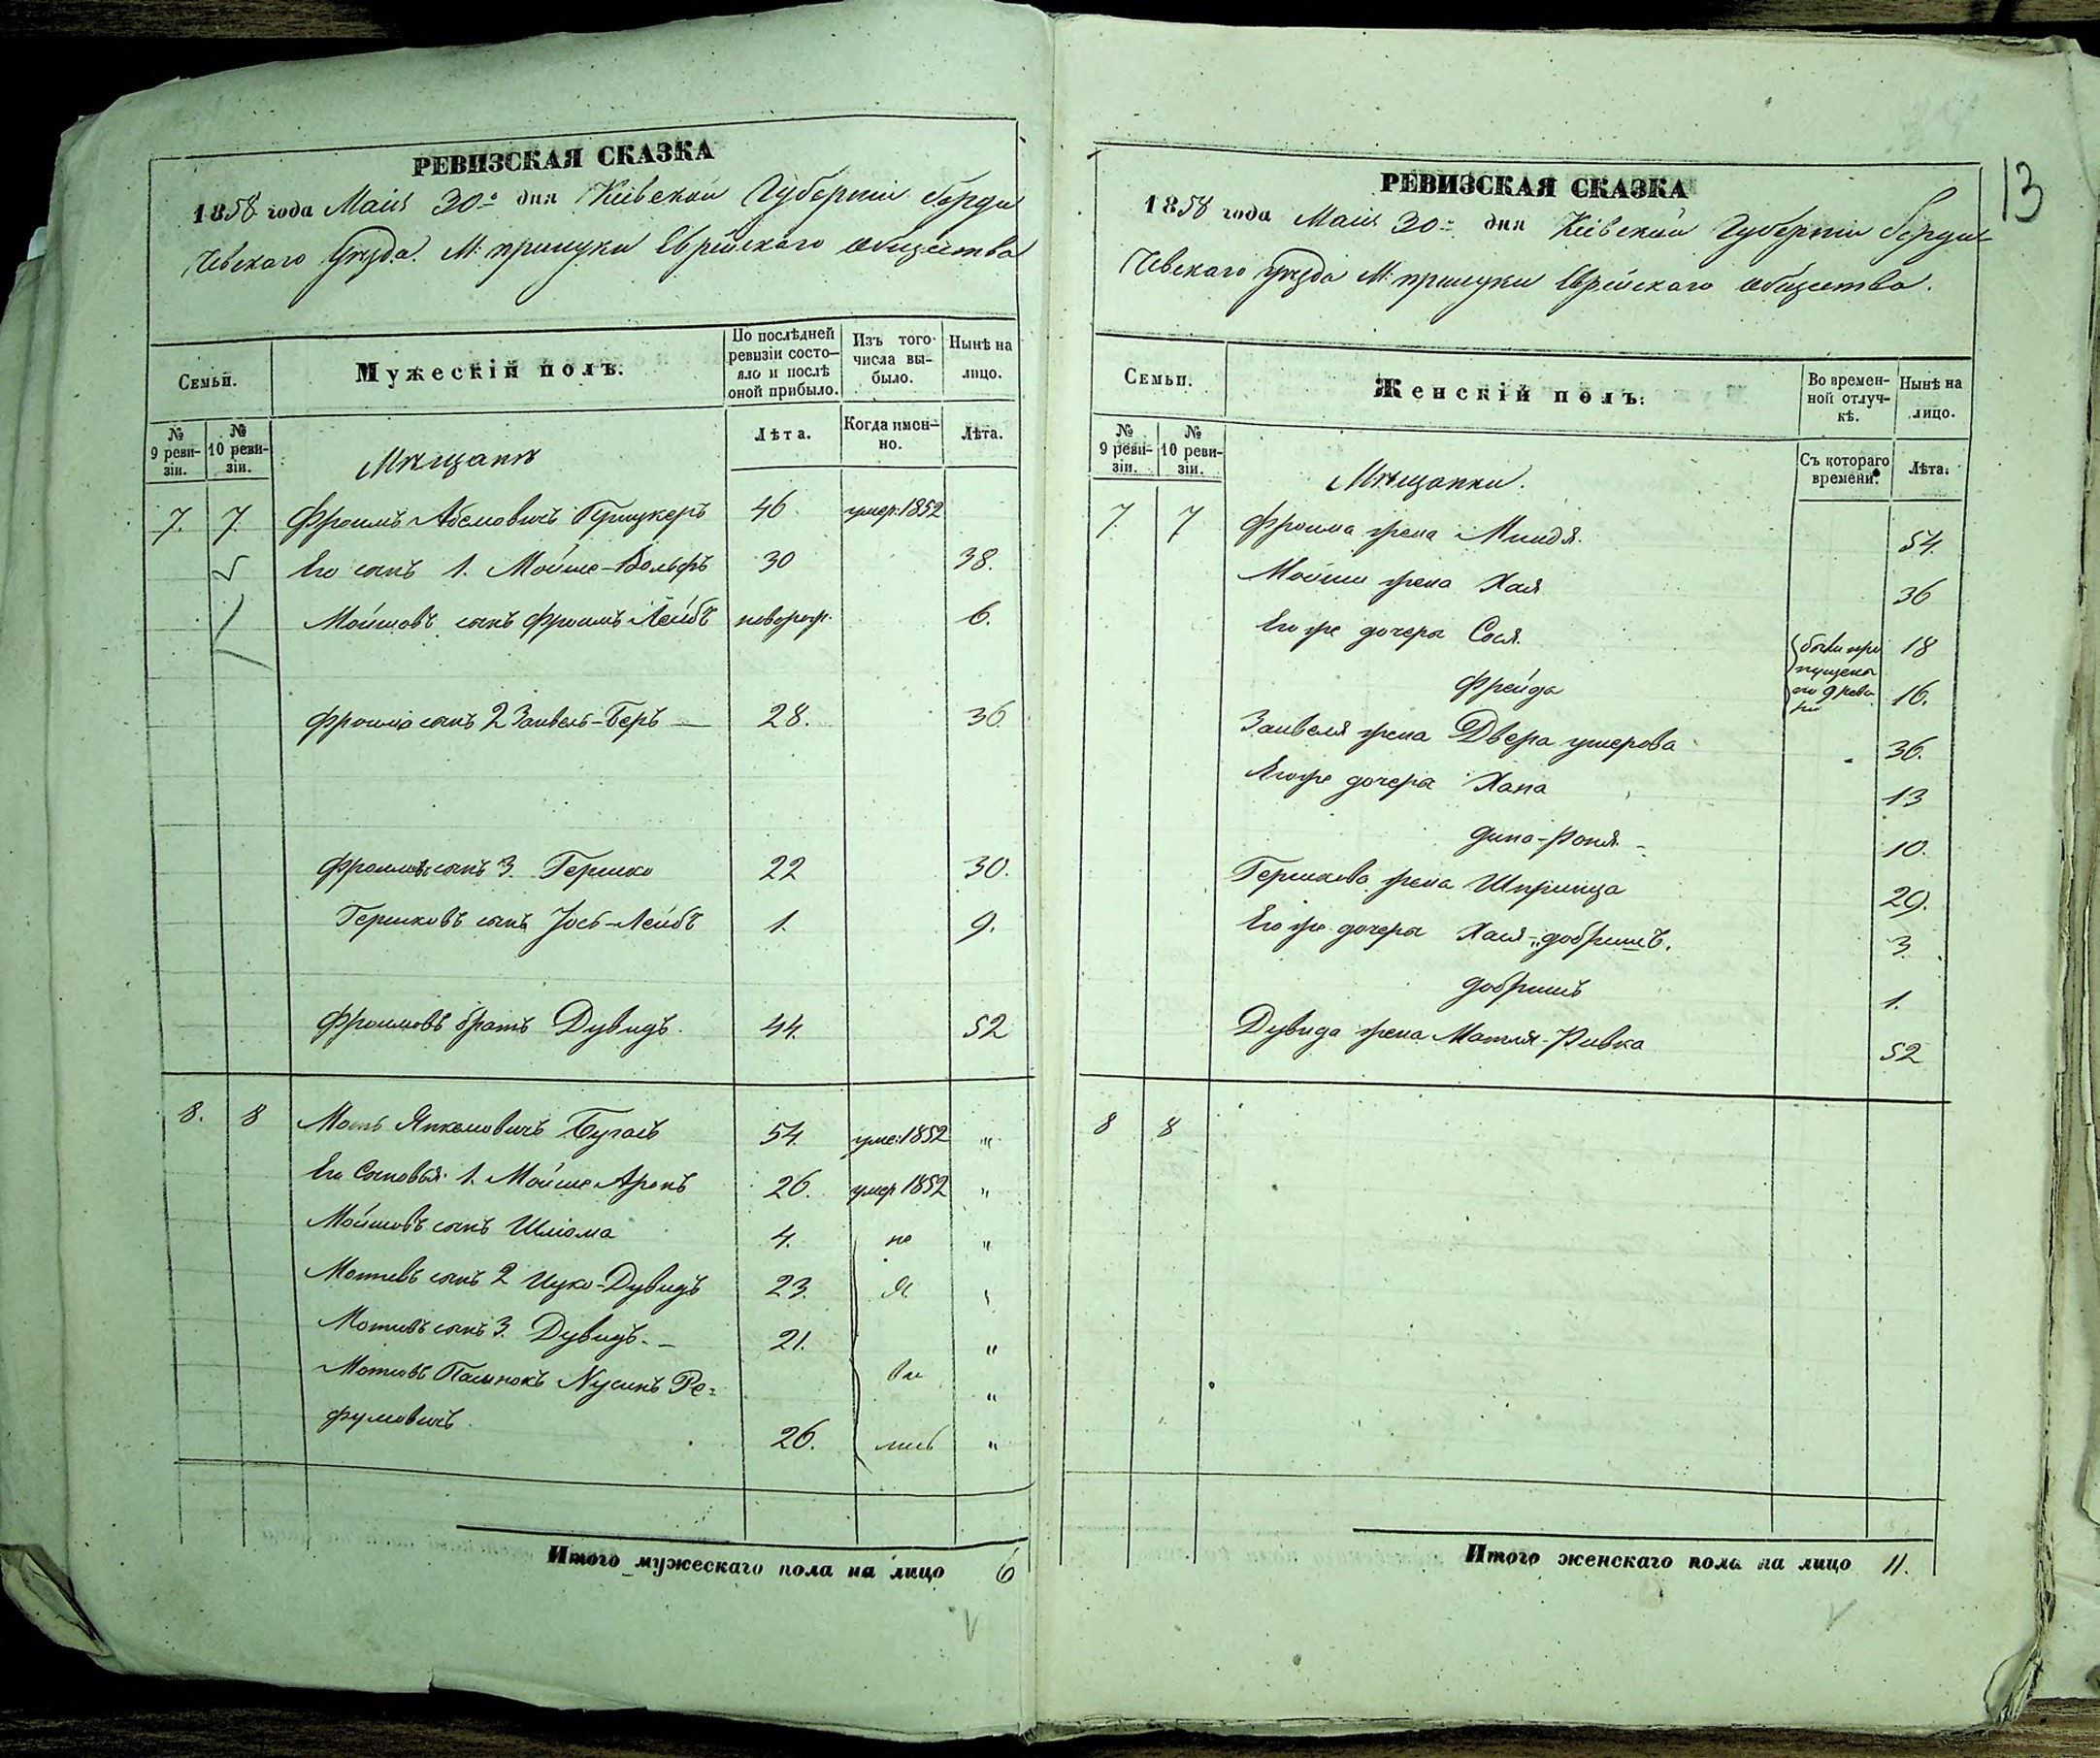 РЕВИЗСКАЯ СКАЗКА
1858 года Маія 30го дня Кіевской Губерніи Берди
чевскаго Уѣзда М: прилуки Еврейскаго Общества
Семьи.
Мужескій полъ.
По послѣдней ревизіи состо-
яло и послѣ оной прибыло.
Изъ того числа вы-
было.
Нынѣ на лицо.
№ 9 реви-
зіи.
№ 10 реви-
зіи.
Мѣщане
Лѣта.
Когда имен-
но.
Лѣта.
7. 7. Фроимъ Абелювичъ 46 умер: 1852
Его сынъ 1. Мойше-Вольфъ 30 38.
Мойшовъ сынъ Фроимъ Лейбъ новорож. 6.
Фроима сынъ 2 Заивель-Беръ — 28. 36
Фроимовъ сынъ 3. Гершко 22 30.
Гершковъ сынъ Іось-Лейбъ 1. 9.
Фроимовъ братъ Дувидъ. 44. 52
8. 8 Янкелювичъ 54. умер: 1852 "
Его Сыновья 1. Мойше Аронъ 26. умер 1852 "
Мойшовъ сынъ Шлома 4. не "
Мотевъ сынъ 2 Ицко-Дувидъ 23. "
Мотевъ сынъ 3. Дувидъ. — 21. "
Нусинъ Ре=
фуловичъ. 26. "
Итого мужескаго пола на лицо 6
13
РЕВИЗСКАЯ СКАЗКА
1858 года Маія 30го дня Кіевской Губерніи Берди
чевскаго уѣзда М: прилуки Еврейскаго общества.
Семьи.
Женскій полъ.
Во времен-
ной отлуч-
кѣ.
Нынѣ на лицо.
№ 9 реви-
зіи.
№ 10 реви-
зіи.
Мѣщанки.
Съ котораго времени.
Лѣта.
7 7 Фроима жена Миндя. 54.
Мойши жена Хая 36
Его же дочеры Сося. 18
Фрейда 16.
были про
пущены
по 9 реви
зіи
Заивеля жена Двера умерова 36.
Его же дочеры Хана 13
дина-Роня. 10.
Гершкова жена Шпринца 29.
Его же дочеры Хася-„добришъ. 3
добришъ 1.
Дувида жена Матля-Ривка 52
8 8
Итого женскаго пола на лицо 11.